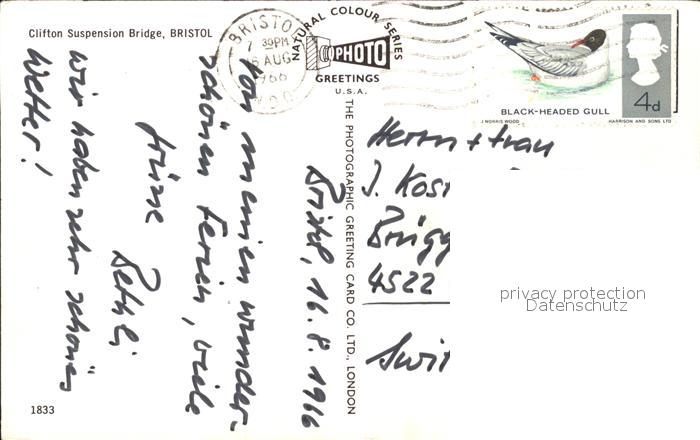 Clifton Suspension Bridge, BRISTOL
BRISTOL
7 30PM
16 AUG
1966
NATURAL COLOUR SERIES
PHOTO
GREETINGS
U.S.A.
BLACK-HEADED GULL
4d
J NORRIS WOOD
HARRISON AND SONS LTD
THE PHOTOGRAPHIC GREETING CARD CO. LTD., LONDON
Bristol, 16.8.1966
Von meinen wunder-
schönen Ferien, viele
Grüsse
Bethli
Wir haben sehr schönes
Wetter!
Herrn + Frau
J. Kos
Brügg
4522
Swi
privacy protection
Datenschutz
1833